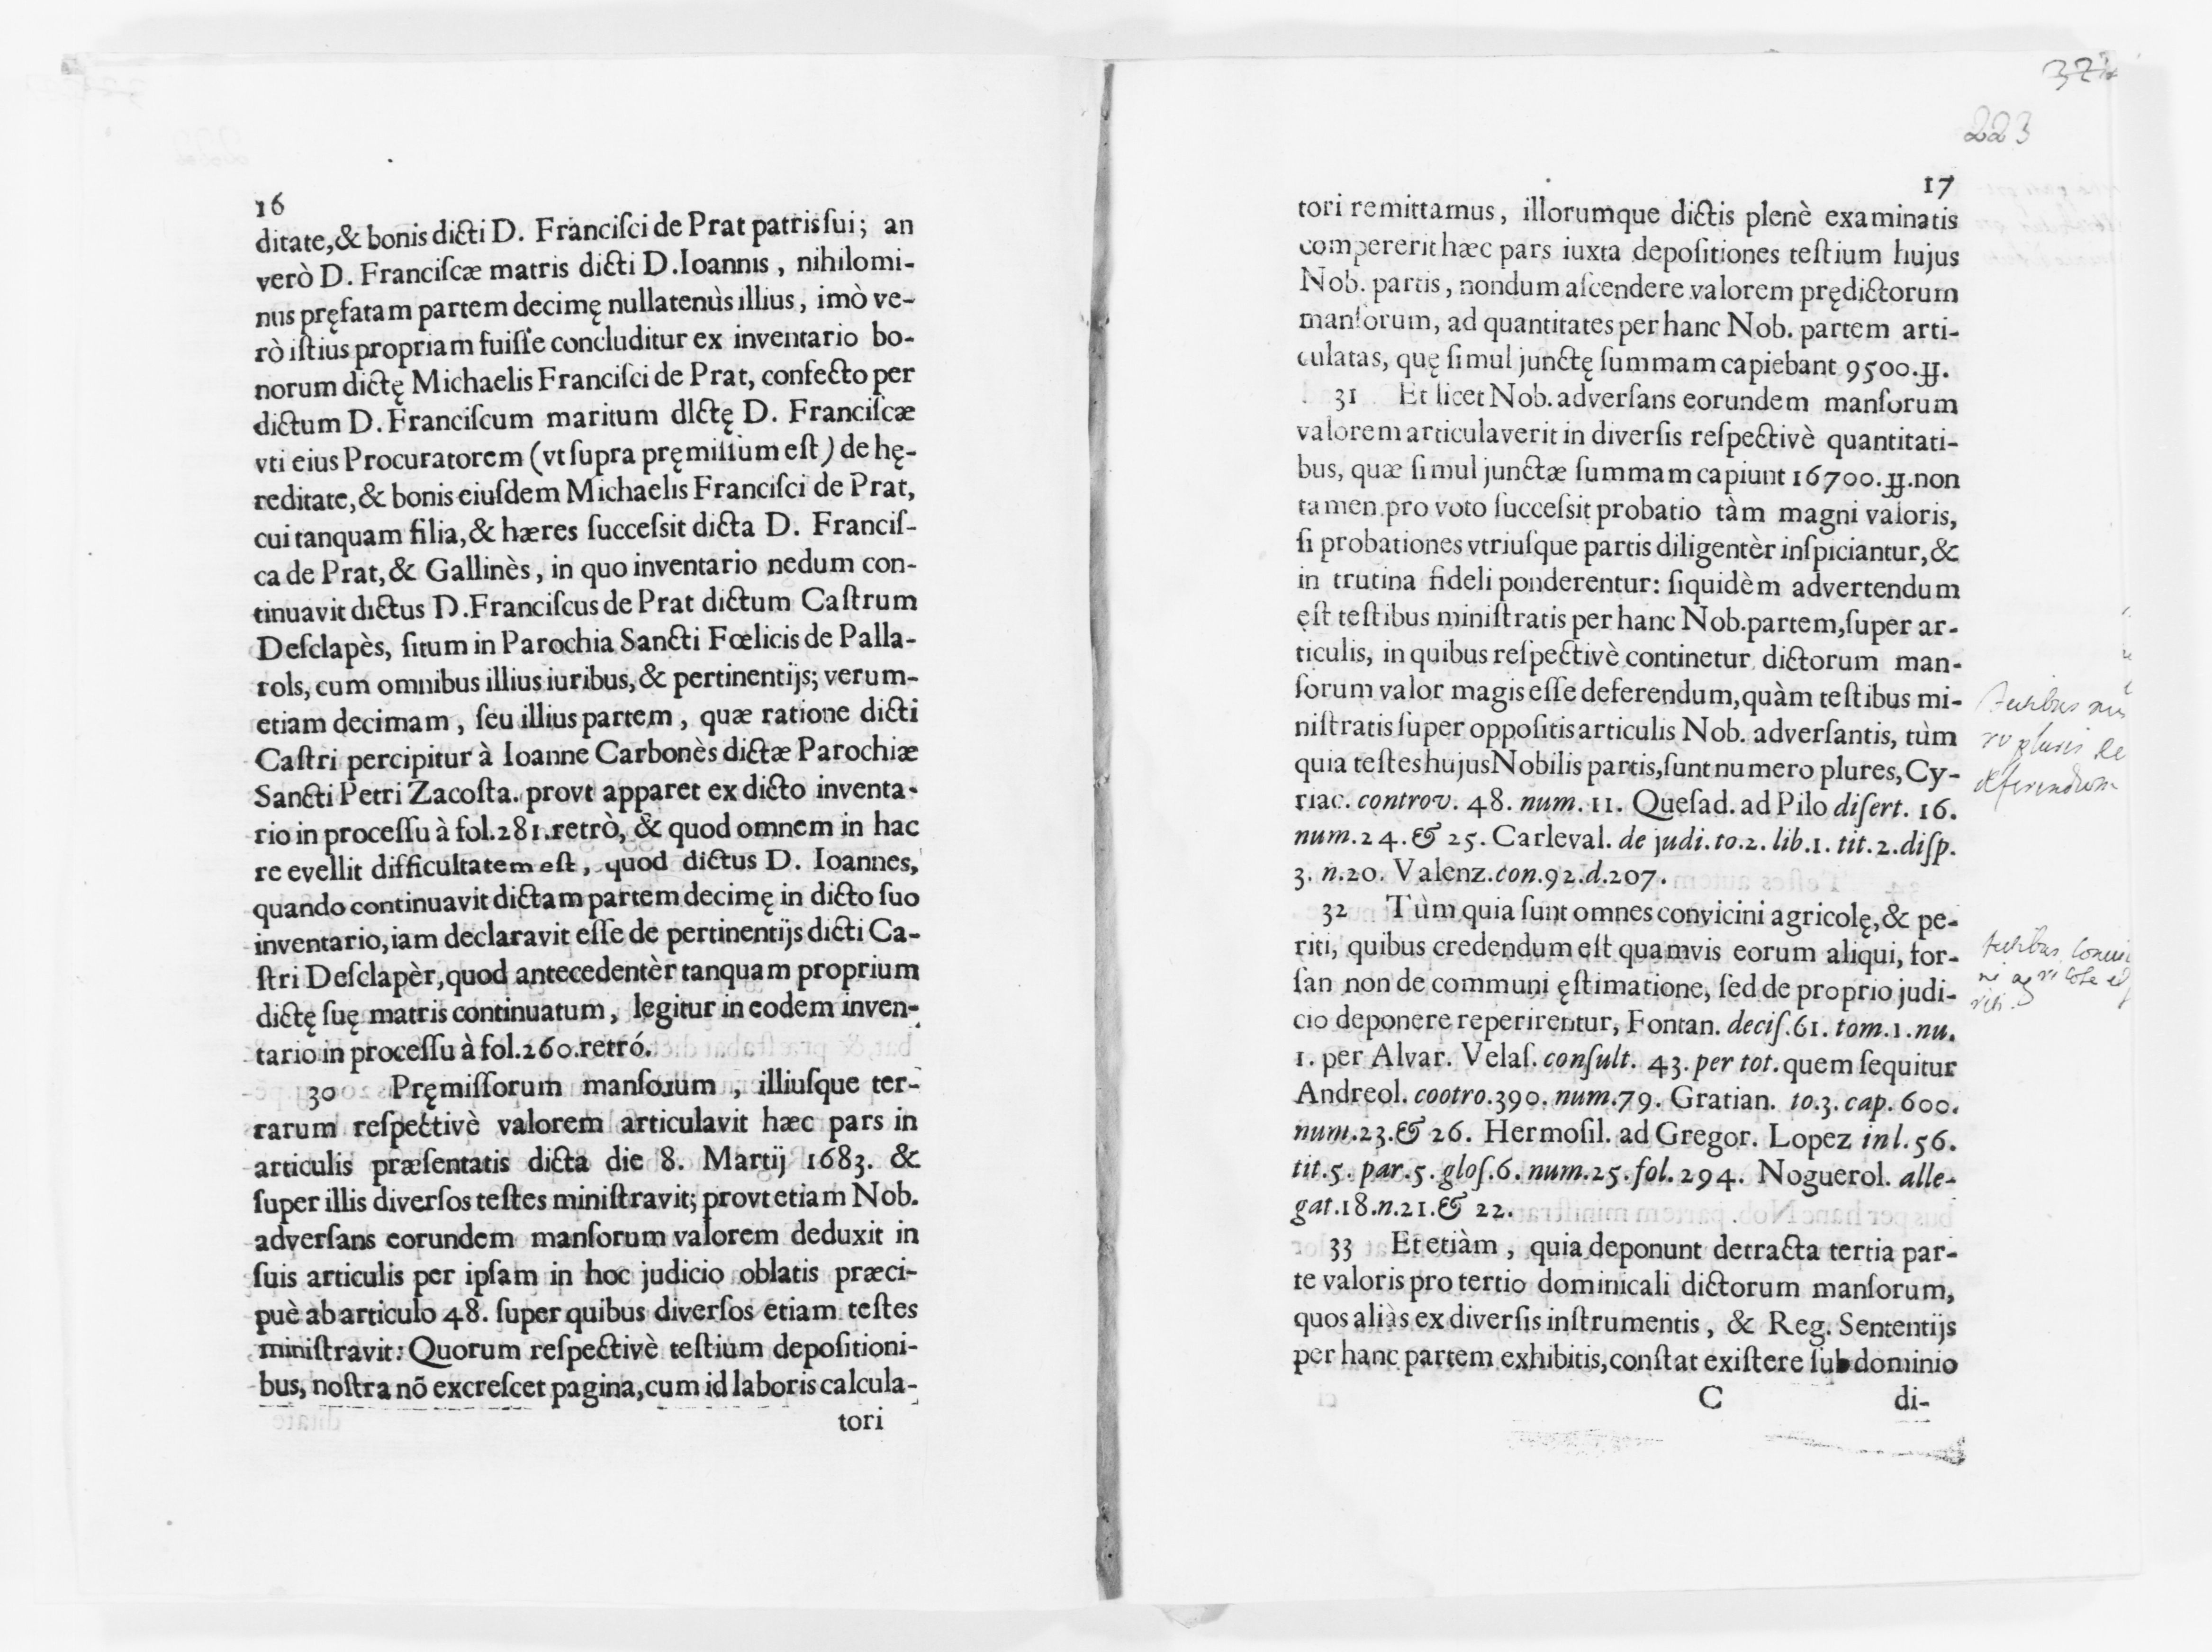 16
ditate,& bonis dicti D. Franciſci de Prat patris ſui; an
verò D. Franciſcæ matris dicti D.Ioannis, nihilomi-
nus pręfatam partem decimę nullatenùs illius, imò ve-
rò iſtius propriam fuiſſe concluditur ex inventario bo-
norum dictę Michaelis Franciſci de Prat, confecto per
dictum D. Franciſcum maritum dlctę D. Franciſcæ
vti eius Procuratorem (vt ſupra pręmiſſum eſt) de hę-
reditate,& bonis eiuſdem Michaelis Franciſci de Prat,
cui tanquam filia,& hæres ſucceſsit dicta D. Franciſ-
ca de Prat,& Gallinès, in quo inventario nedum con-
tinuavit dictus D.Franciſcus de Prat dictum Caſtrum
Deſclapès, ſitum in Parochia Sancti Fœlicis de Palla-
rols, cum omnibus illius iuribus,& pertinentijs; verum-
etiam decimam, ſeu illius partem, quæ ratione dicti
Caſtri percipitur à Ioanne Carbonès dictæ Parochiæ
Sancti Petri Zacoſta. provt apparet ex dicto inventa-
rio in proceſſu à fol.281.retrò, & quod omnem in hac
re evellit difficultatem eſt, quod dictus D. Ioannes,
quando continuavit dictam partem decimę in dicto ſuo
inventario, iam declaravit eſſe de pertinentijs dicti Ca-
ſtri Deſclapèr, quod antecedentèr tanquam proprium
dictę ſuę matris continuatum, legitur in eodem inven-
tario in proceſſu à fol.260.retró.
30 Pręmiſſorum manſorum, illiuſque ter-
rarum reſpectivè valorem articulavit hæc pars in
articulis præſentatis dicta die 8. Martij 1683. &
ſuper illis diverſos teſtes miniſtravit; provt etiam Nob.
adverſans eorundem manſorum valorem deduxit in
ſuis articulis per ipſam in hoc judicio oblatis præci-
puè ab articulo 48. ſuper quibus diverſos etiam teſtes
miniſtravit: Quorum reſpectivè teſtium depoſitioni-
bus, noſtra nō excreſcet pagina, cum id laboris calcula-
tori
223
17
tori remittamus, illorumque dictis plenè examinatis
compererit hæc pars iuxta depoſitiones teſtium hujus
Nob. partis, nondum aſcendere valorem prędictorum
manſorum, ad quantitates per hanc Nob. partem arti-
culatas, quę ſimul junctę ſummam capiebant 9500.JJ.
31 Et licet Nob. adverſans eorundem manſorum
valorem articulaverit in diverſis reſpectivè quantitati-
bus, quæ ſimul junctæ ſummam capiunt 16700.JJ.non
tamen pro voto ſucceſsit probatio tàm magni valoris,
ſi probationes vtriuſque partis diligentèr inſpiciantur,&
in trutina fideli ponderentur: ſiquidèm advertendum
eſt teſtibus miniſtratis per hanc Nob.partem, ſuper ar-
ticulis, in quibus reſpectivè continetur dictorum man-
ſorum valor magis eſſe deferendum, quàm teſtibus mi-
niſtratis ſuper oppoſitis articulis Nob. adverſantis, tùm
quia teſtes hujus Nobilis partis, ſunt numero plures, Cy-
riac. controv. 48. num. 11. Queſad. ad Pilo diſert. 16.
num.24.& 25. Carleval. de judi.to.2. lib.1. tit.2.diſp.
3. n.20. Valenz.con.92.d.207.
32 Tùm quia ſunt omnes convicini agricolę,& pe-
riti, quibus credendum eſt quamvis eorum aliqui, for-
ſan non de communi ęſtimatione, ſed de proprio judi-
cio deponere reperirentur, Fontan. deciſ.61. tom.1.nu.
1. per Alvar. Velaſ. conſult. 43. per tot. quem ſequitur
Andreol. cootro.390. num.79. Gratian. to.3. cap.600.
num.23.& 26. Hermoſil. ad Gregor. Lopez inl.56.
tit.5. par.5.gloſ.6. num.25.fol.294. Noguerol. alle-
gat.18.n.21.& 22.
33 Et etiàm, quia deponunt detracta tertia par-
te valoris pro tertio dominicali dictorum manſorum,
quos aliàs ex diverſis inſtrumentis, & Reg. Sententijs
per hanc partem exhibitis, conſtat exiſtere ſub dominio
C di-